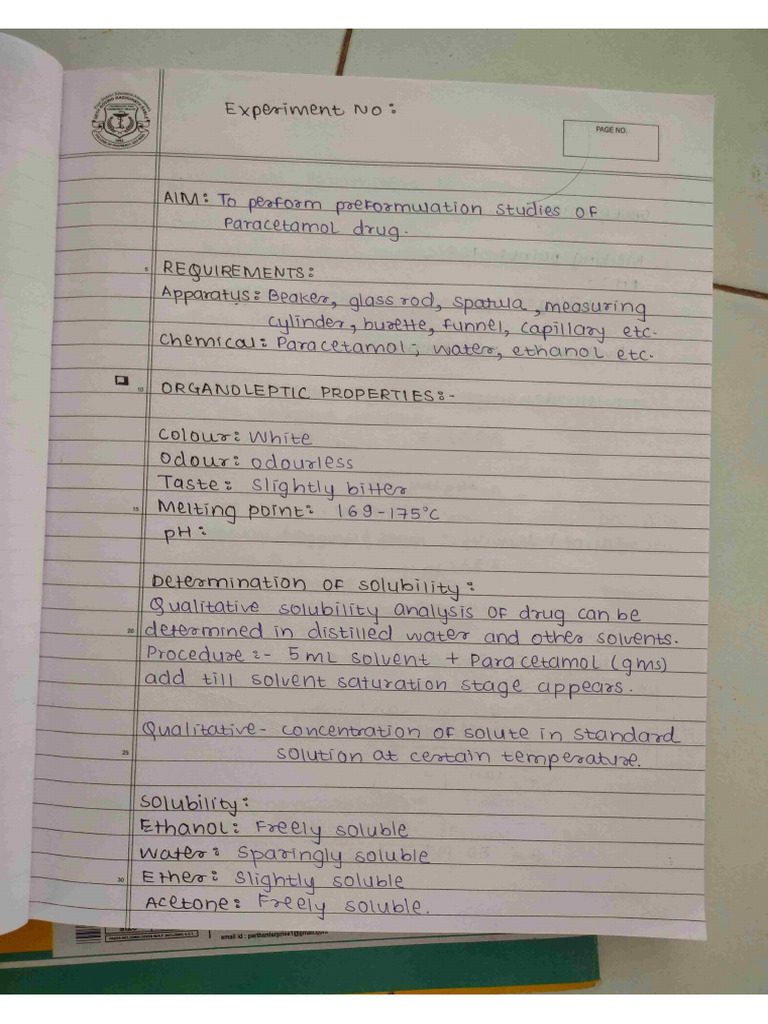 Experiment No:
PAGE NO.
AIM: To perform preformulation studies of
Paracetamol drug.
5
REQUIREMENTS:
Apparatus: Beaker, glass rod, spatula, measuring
cylinder, burette, funnel, capillary etc.
Chemical: Paracetamol, water, ethanol etc.
10
ORGANOLEPTIC PROPERTIES:-
Colour: White
Odour: odourless
Taste: Slightly bitter
15
Melting point: 169-175°C
pH:
Determination of solubility:
Qualitative solubility analysis of drug can be
20
determined in distilled water and other solvents.
Procedure:- 5mL solvent + Paracetamol (gms)
add till solvent saturation stage appears.
Qualitative- concentration of solute in standard
25
solution at certain temperature.
Solubility:
Ethanol: Freely soluble
Water: Sparingly soluble
30
Ether: Slightly soluble
Acetone: Freely soluble.